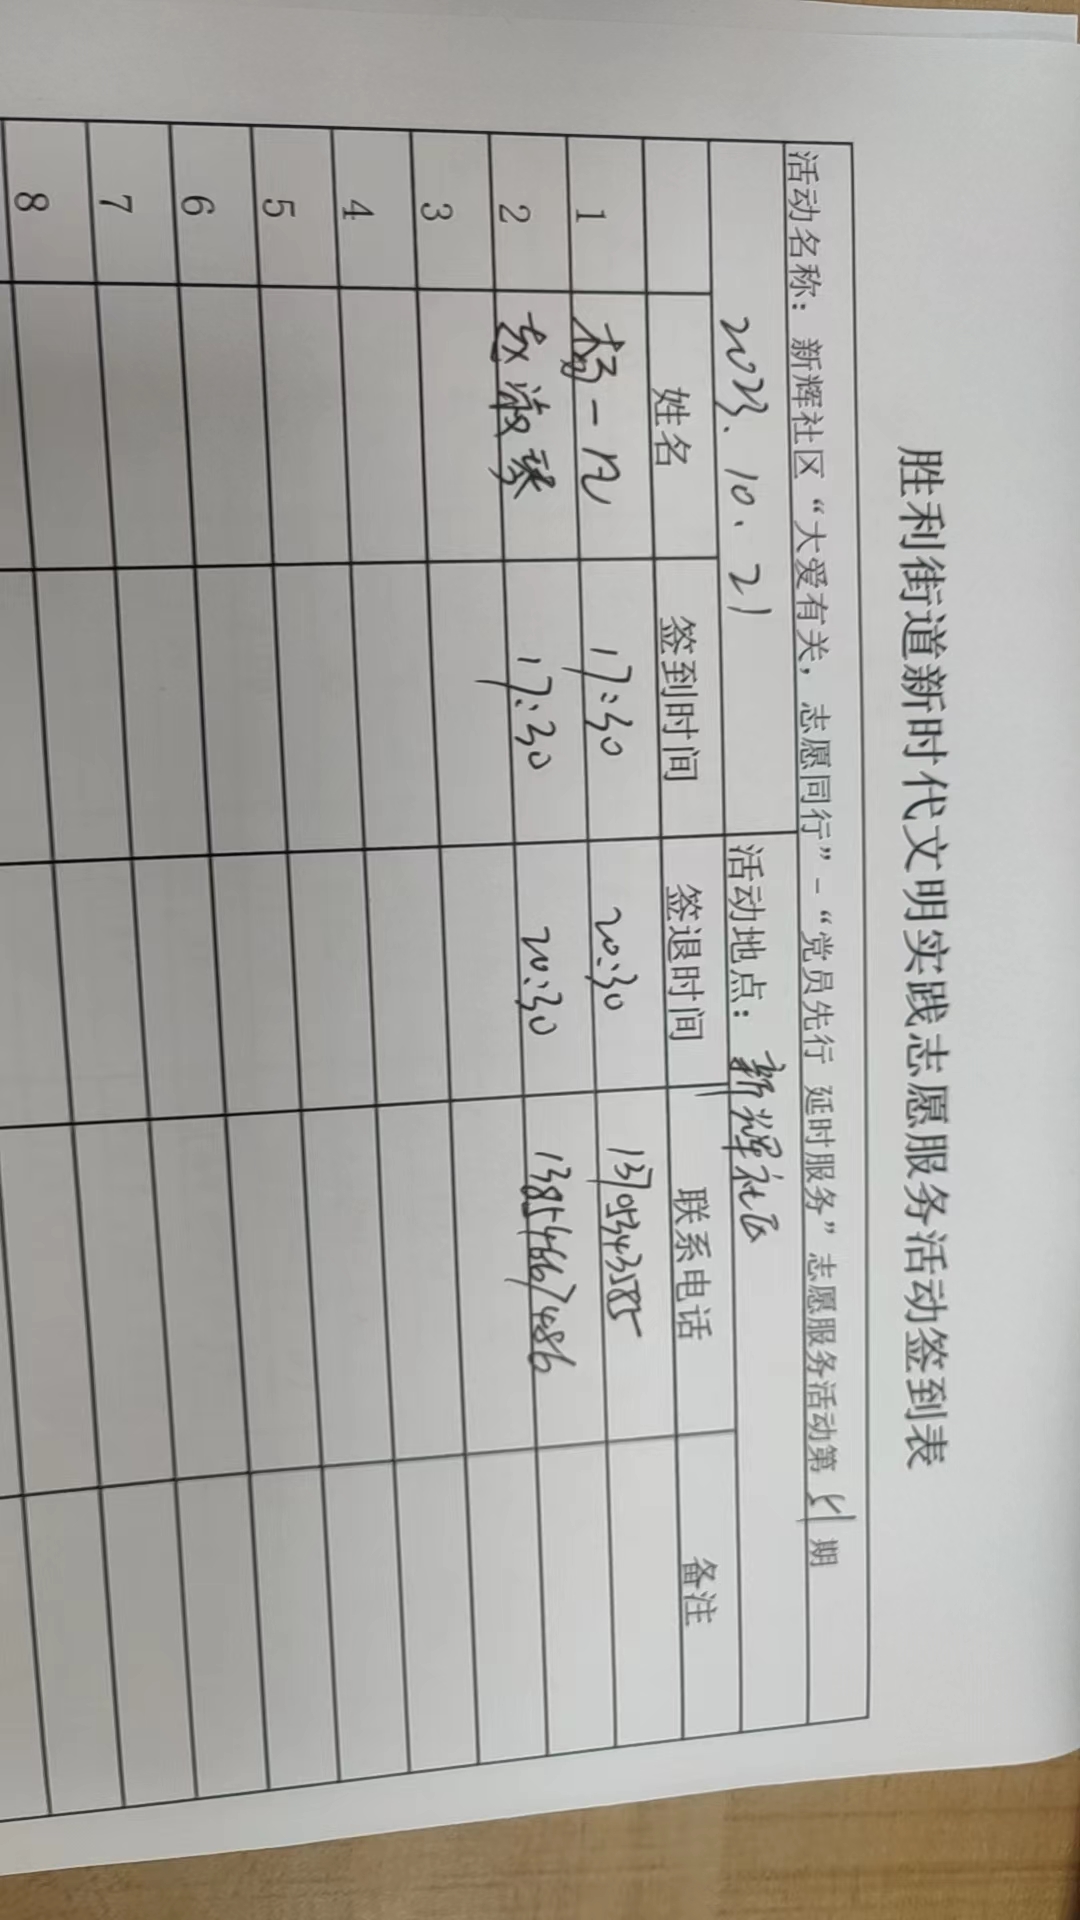 胜利街道新时代文明实践志愿服务活动签到表
活动名称：新辉社区“大爱有关，志愿同行”-“党员先行 延时服务”志愿服务活动第51期
2023.10.21 活动地点：新辉社区
姓名 签到时间 签退时间 联系电话 备注
1 杨一 17:30 20:30 13705343585
2 赵淑琴 17:30 20:30 13854667486
3
4
5
6
7
8